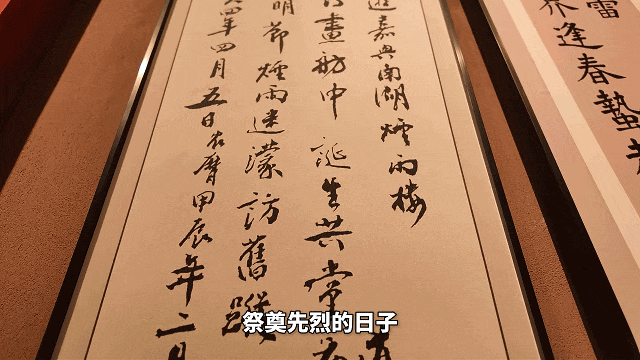 雷
逢春蟄
遊嘉興南湖煙雨樓
畫舫中誕生共黨
明節煙雨迷濛訪舊蹤
四年四月五日农曆甲辰年二月
祭奠先烈的日子